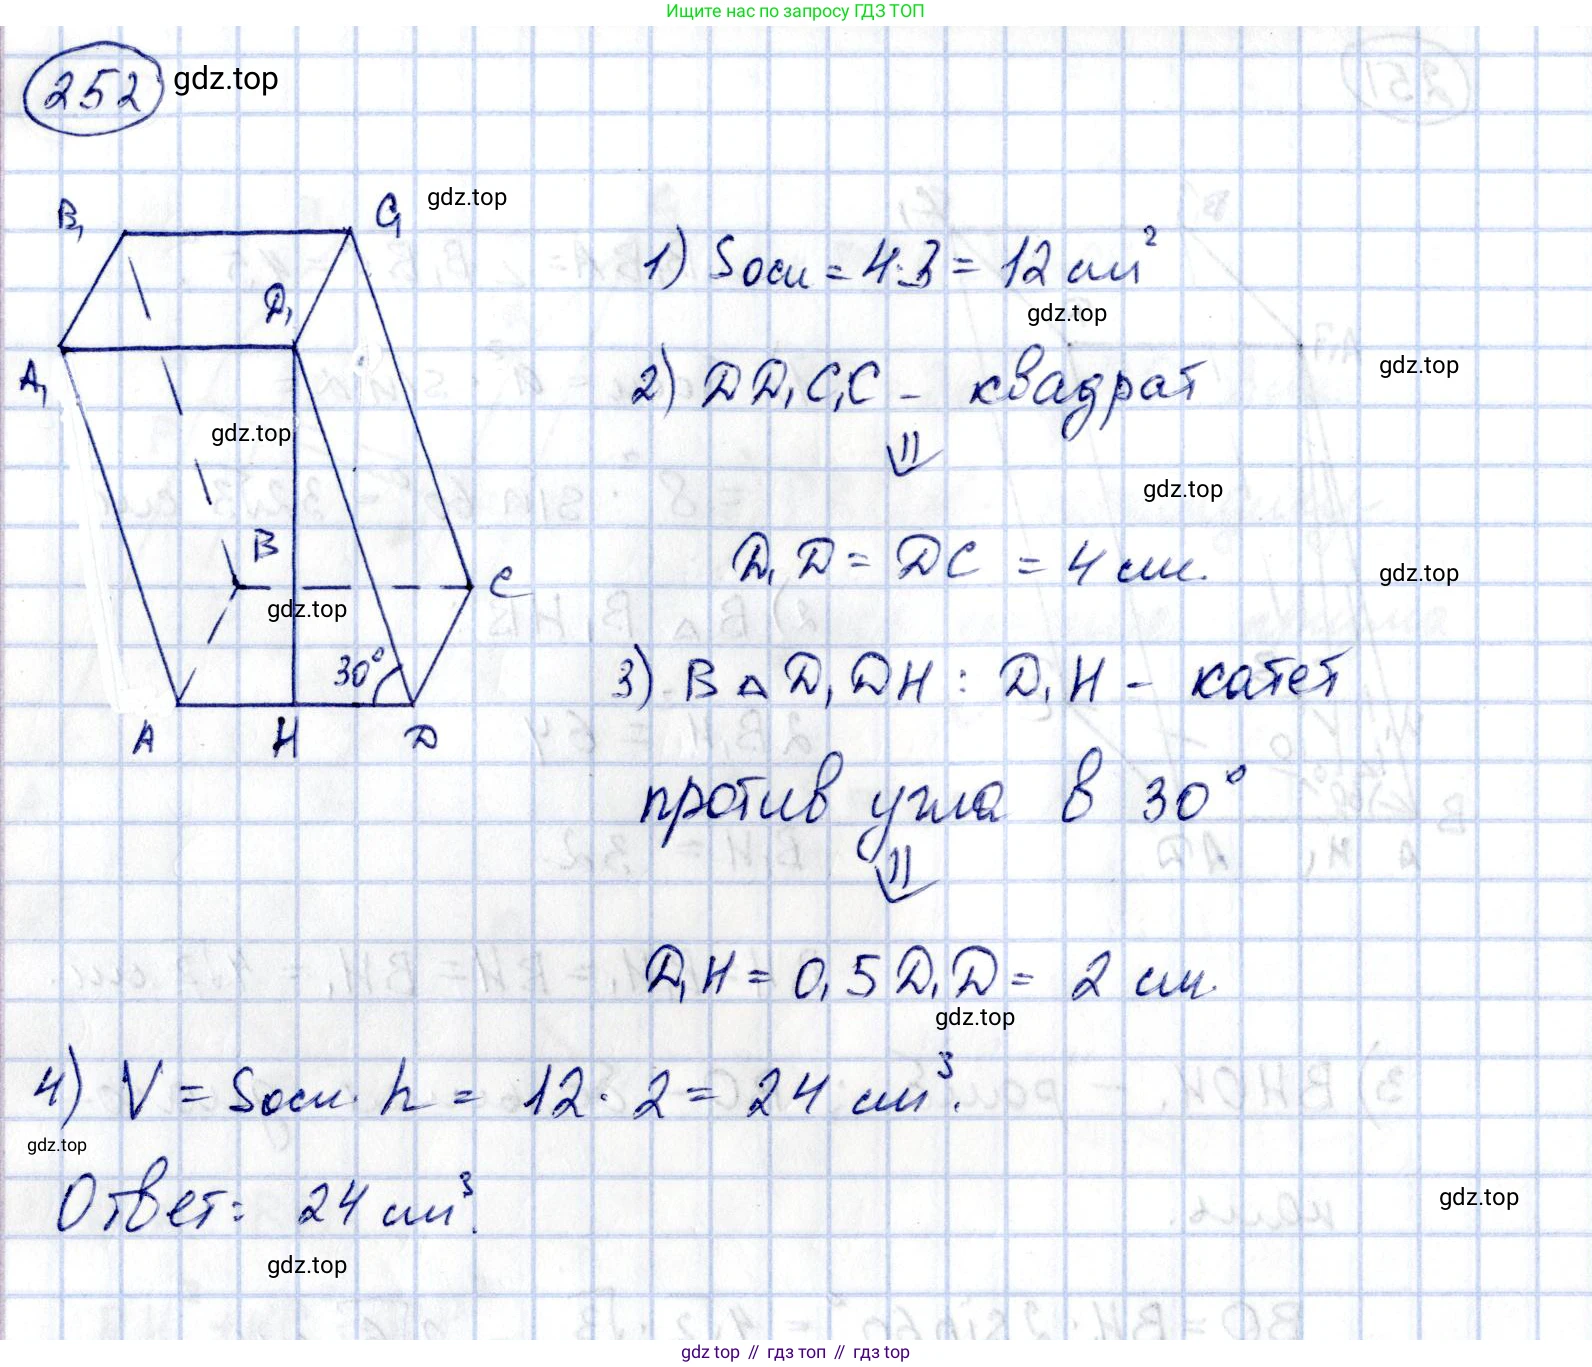 Ищите нас по запросу ГДЗ ТОП
252 gdz.top
B₁ C₁ gdz.top
D₁
A₁
gdz.top
B
C
gdz.top
30°
A H D
1) Sосн = 4·3 = 12 см²
gdz.top
2) DD₁C₁C - квадрат
gdz.top
⇓
gdz.top
D₁D = DC = 4 см.
gdz.top
3) В △ D₁DH : D₁H - катет
против угла в 30°
⇓
D₁H = 0,5 D₁D = 2 см.
gdz.top
4) V = Sосн · h = 12 · 2 = 24 см³.
gdz.top
Ответ: 24 см³.
gdz.top
gdz.top
gdz.top // гдз топ // гдз top